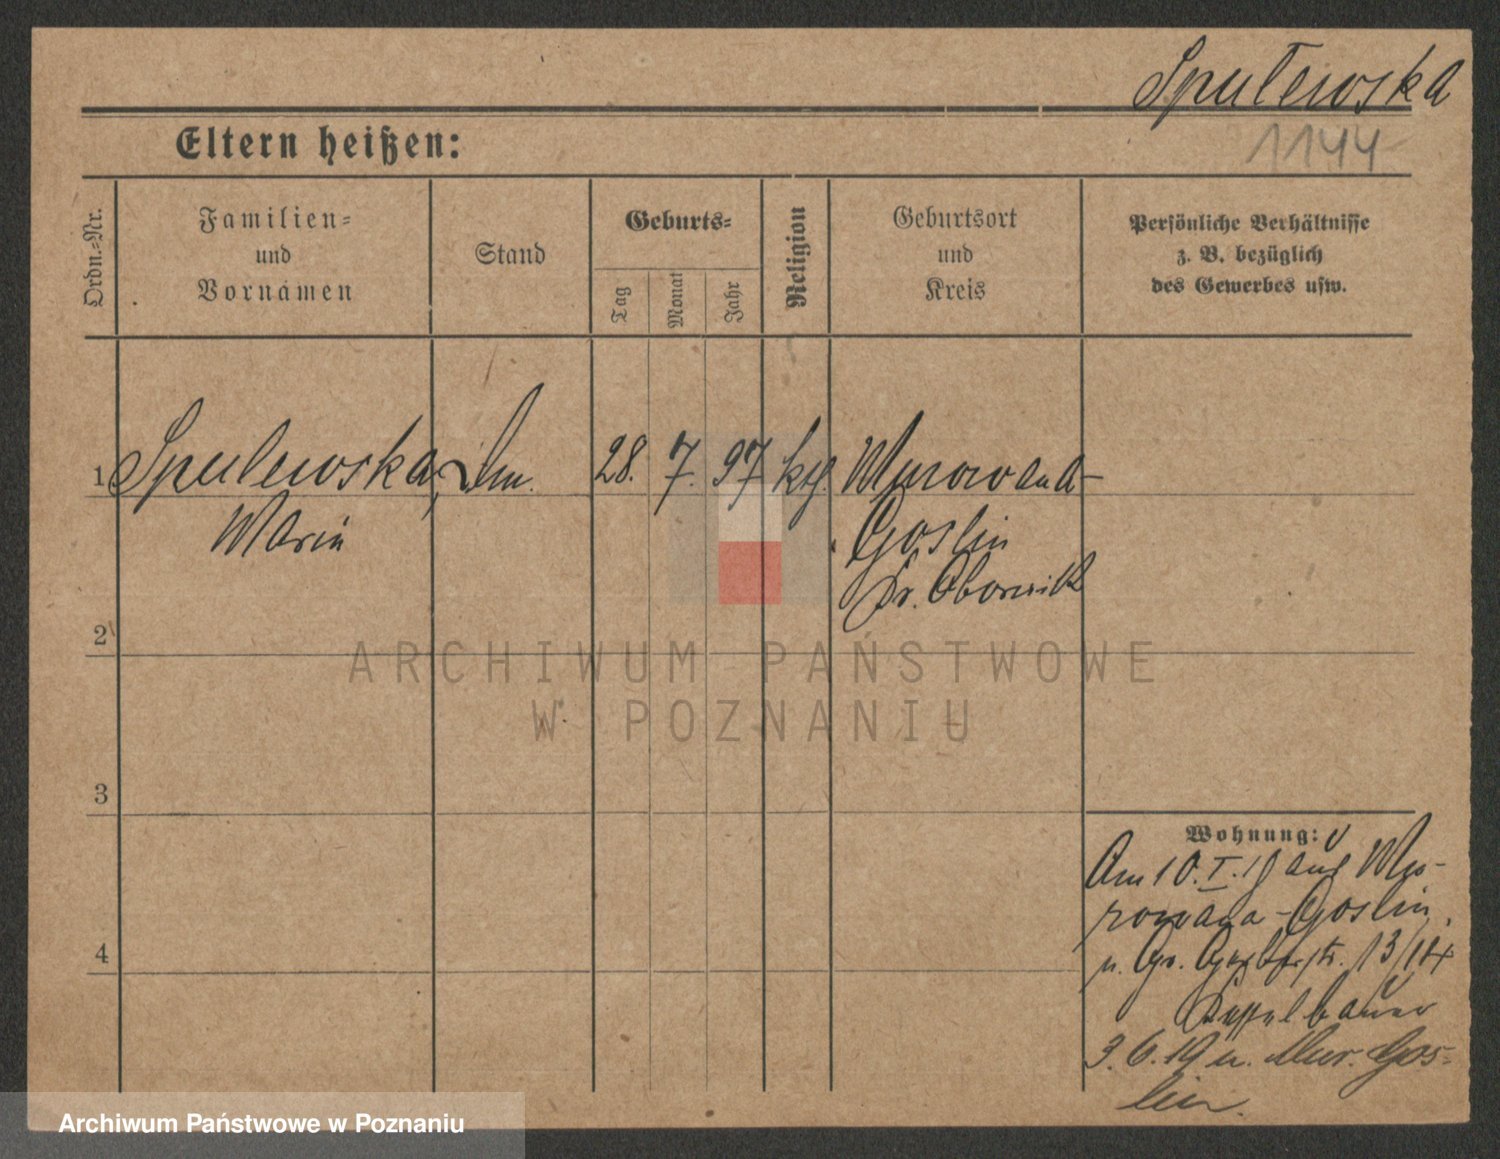 Spulewska
1144
Eltern heißen:
Ordn.-Nr.
Familien-
und
Vornamen
Stand
Geburts-
Tag
Monat
Jahr
Religion
Geburtsort
und
Kreis
Persönliche Verhältnisse
z. B. bezüglich
des Gewerbes usw.
1 Spulewska, 28. 7. 97 kth. Murowana-
Maria Goslin
Kr. Obornik
2
ARCHIWUM PAŃSTWOWE
W POZNANIU
3
Wohnung:
Am 10.I.19 aus Mu-
rowana-Goslin
n. Gr. Gerberstr. 13/14
3.6.19 n. Mur. Gos-
lin.
4
Archiwum Państwowe w Poznaniu